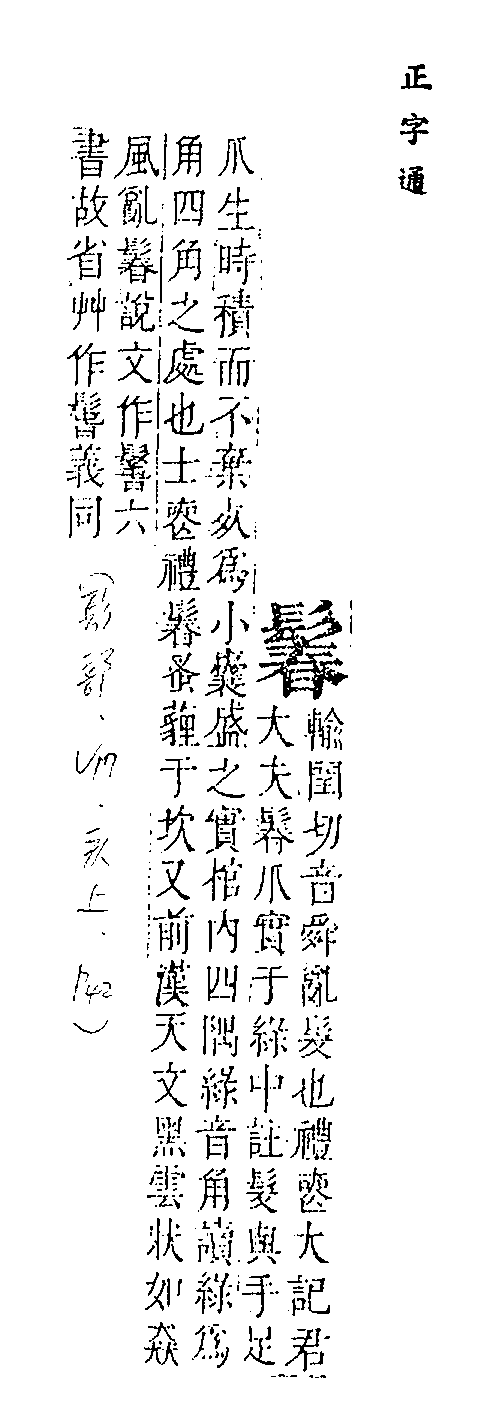 正字通
鬊
輸閏切音舜亂髮也禮喪大記君
大夫鬊爪實于綠中註髮與手足
爪生時積而不棄死爲小囊盛之實棺內四隅綠音角讀綠爲
角四角之處也士喪禮鬊蚤薶于坎又前漢天文黑雲狀如猋
風亂鬊說文作鬊六
書故省艸作鬊義同
(髟部、亥上、142)